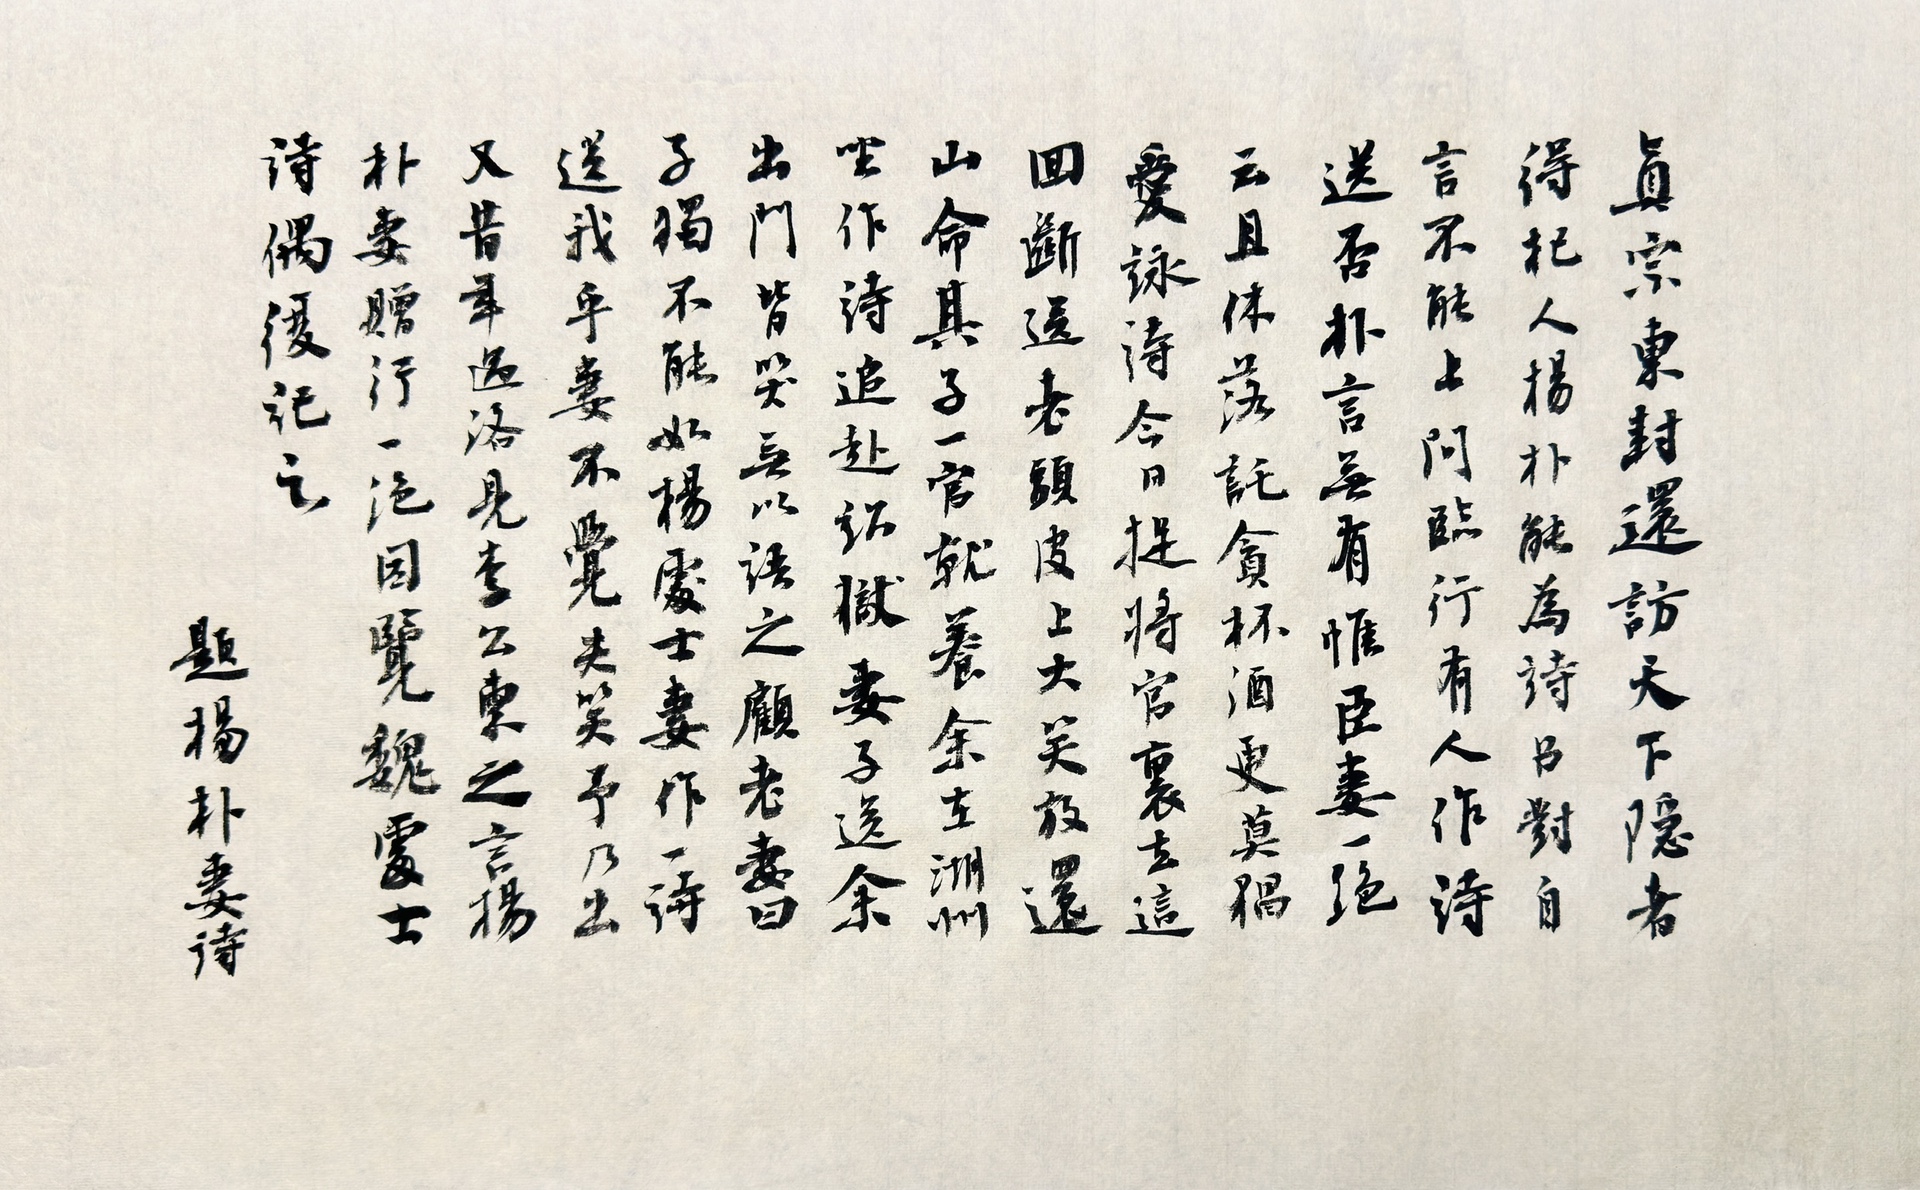 真宗東封還訪天下隱者
得杞人楊朴能為詩召對自
言不能上問臨行有人作詩
送否朴言無有惟臣妻一絕
云且休落託貪杯酒更莫猖
愛詠詩今日捉將官裏去這
回斷送老頭皮上大笑放還
山命其子一官就養余在湖州
坐作詩追赴詔獄妻子送余
出門皆哭無以語之顧老妻曰
子獨不能如楊處士妻作一詩
送我乎妻不覺失笑予乃出
又昔年過洛見李公柬之言楊
朴妻贈行一絕因覽魏處士
詩偶復記之
題楊朴妻詩